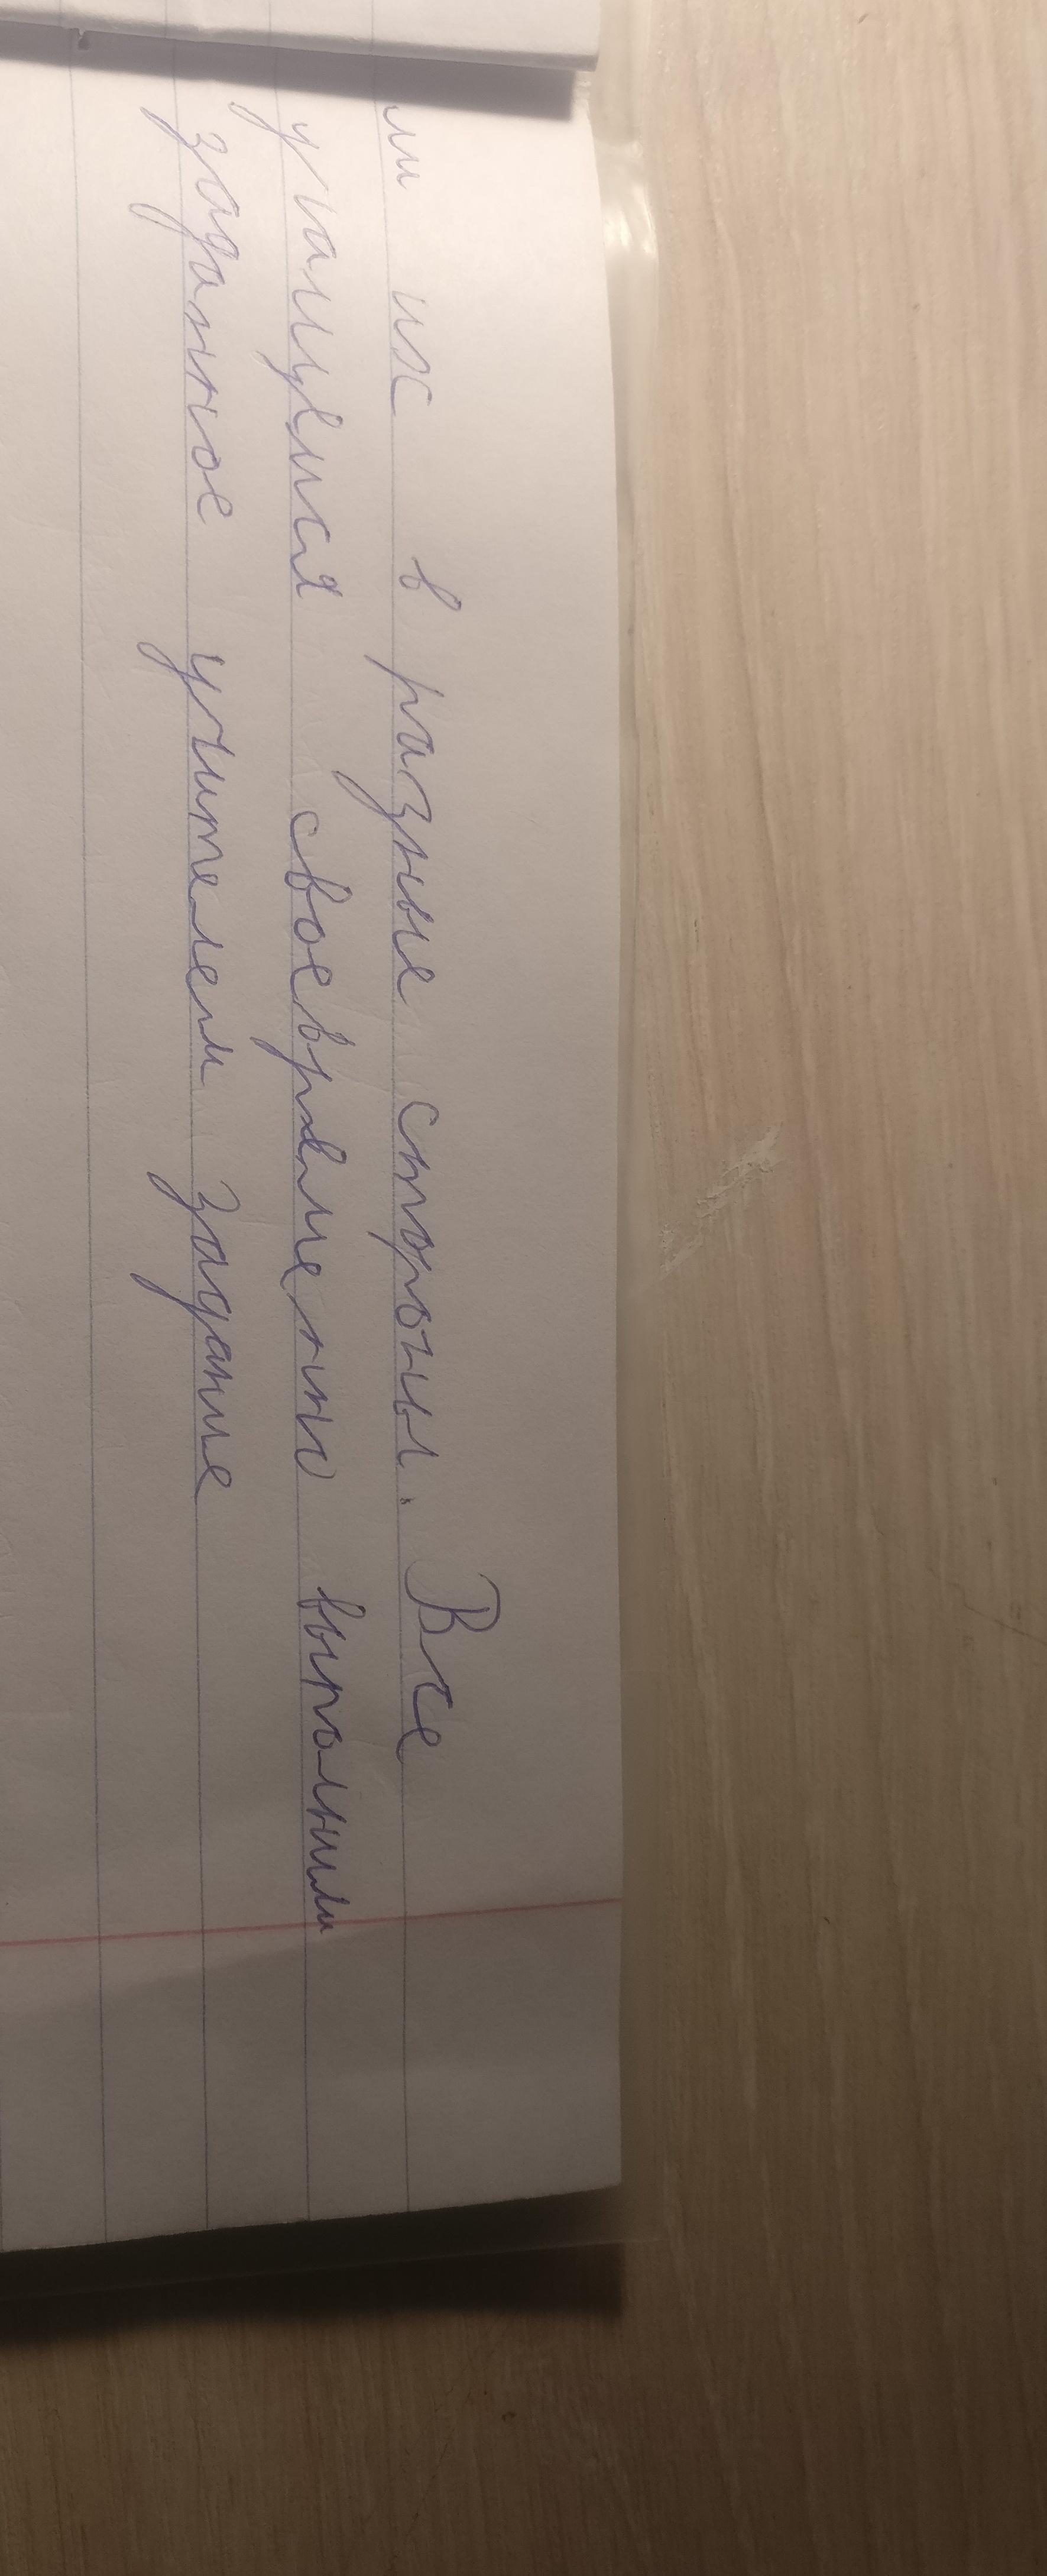 ли их в разные стороны. Все
учащиеся своевременно выполнили
заданное учителем задание